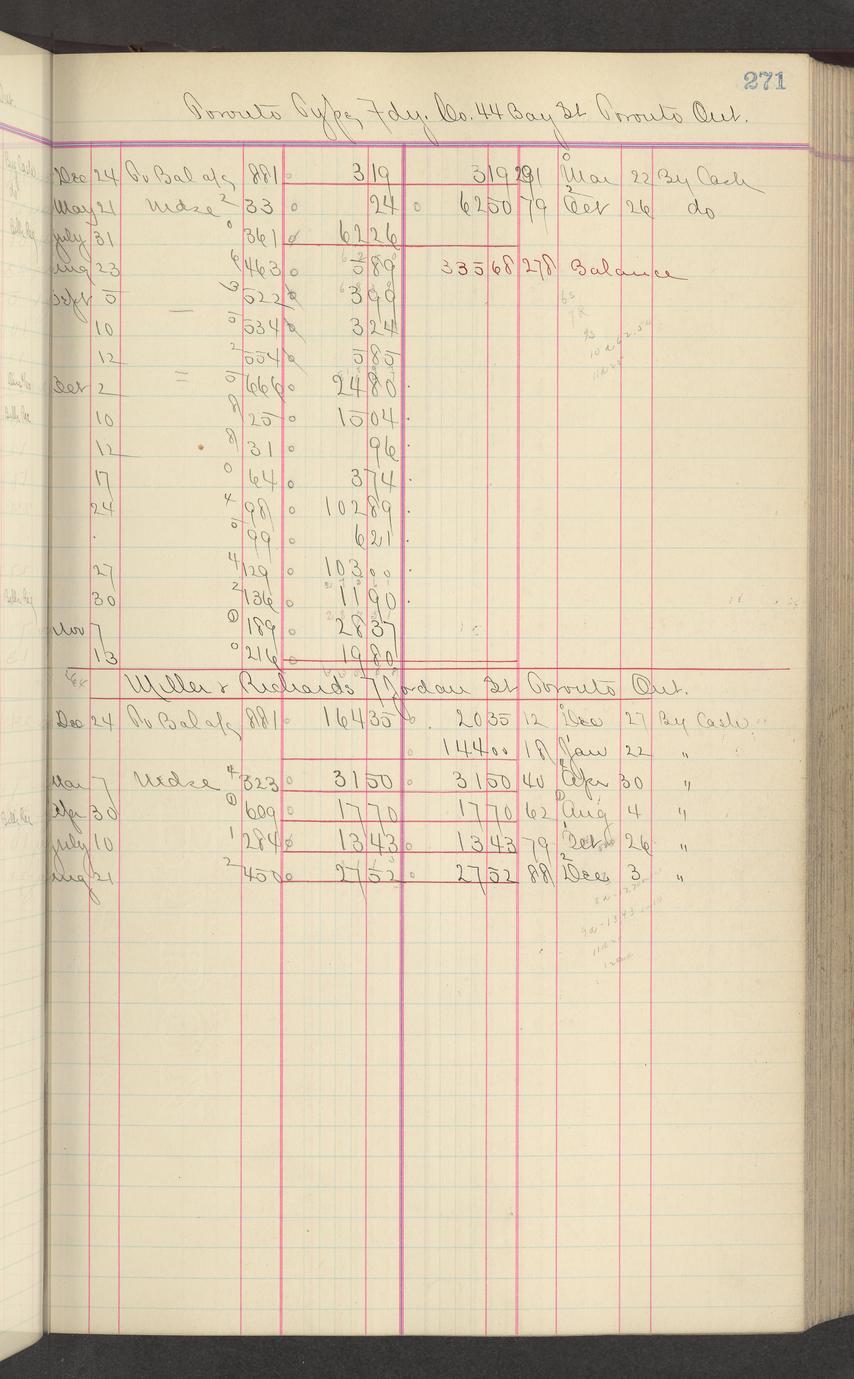 271
Toronto Type Fdy. Co. 44 Bay St Toronto Ont.
Dec 24 To Bal a/c 881 3 19 3 19 291 Mar 22 By Cash
May 21 Mdse 2 33 24 62 50 79 Oct 26 do
July 31 0 361 62 26
Aug 23 6 463 5 89 335 68 278 Balance
Sept 5 522 3 99
10 5 534 3 24
12 2 554 5 85
Oct 2 5 666 24 80
10 8 25 15 04
12 8 31 96
17 0 64 3 74
24 4 98 102 89
5 99 6 21
27 4 129 103 00
30 2 136 11 90
Nov 7 189 28 37
13 0 216 19 80
Miller & Richards 7 Jordan St Toronto Ont.
Dec 24 To Bal a/c 881 164 35 20 35 12 Dec 27 By Cash
144 00 18 Jan 22 "
Mar 7 Mdse 4 323 31 50 31 50 40 Apr 30 "
Apr 30 609 17 70 17 70 62 Aug 4 "
July 10 1 284 13 43 13 43 79 Oct 26 "
Aug 21 2 450 27 52 27 52 88 Dec 3 "